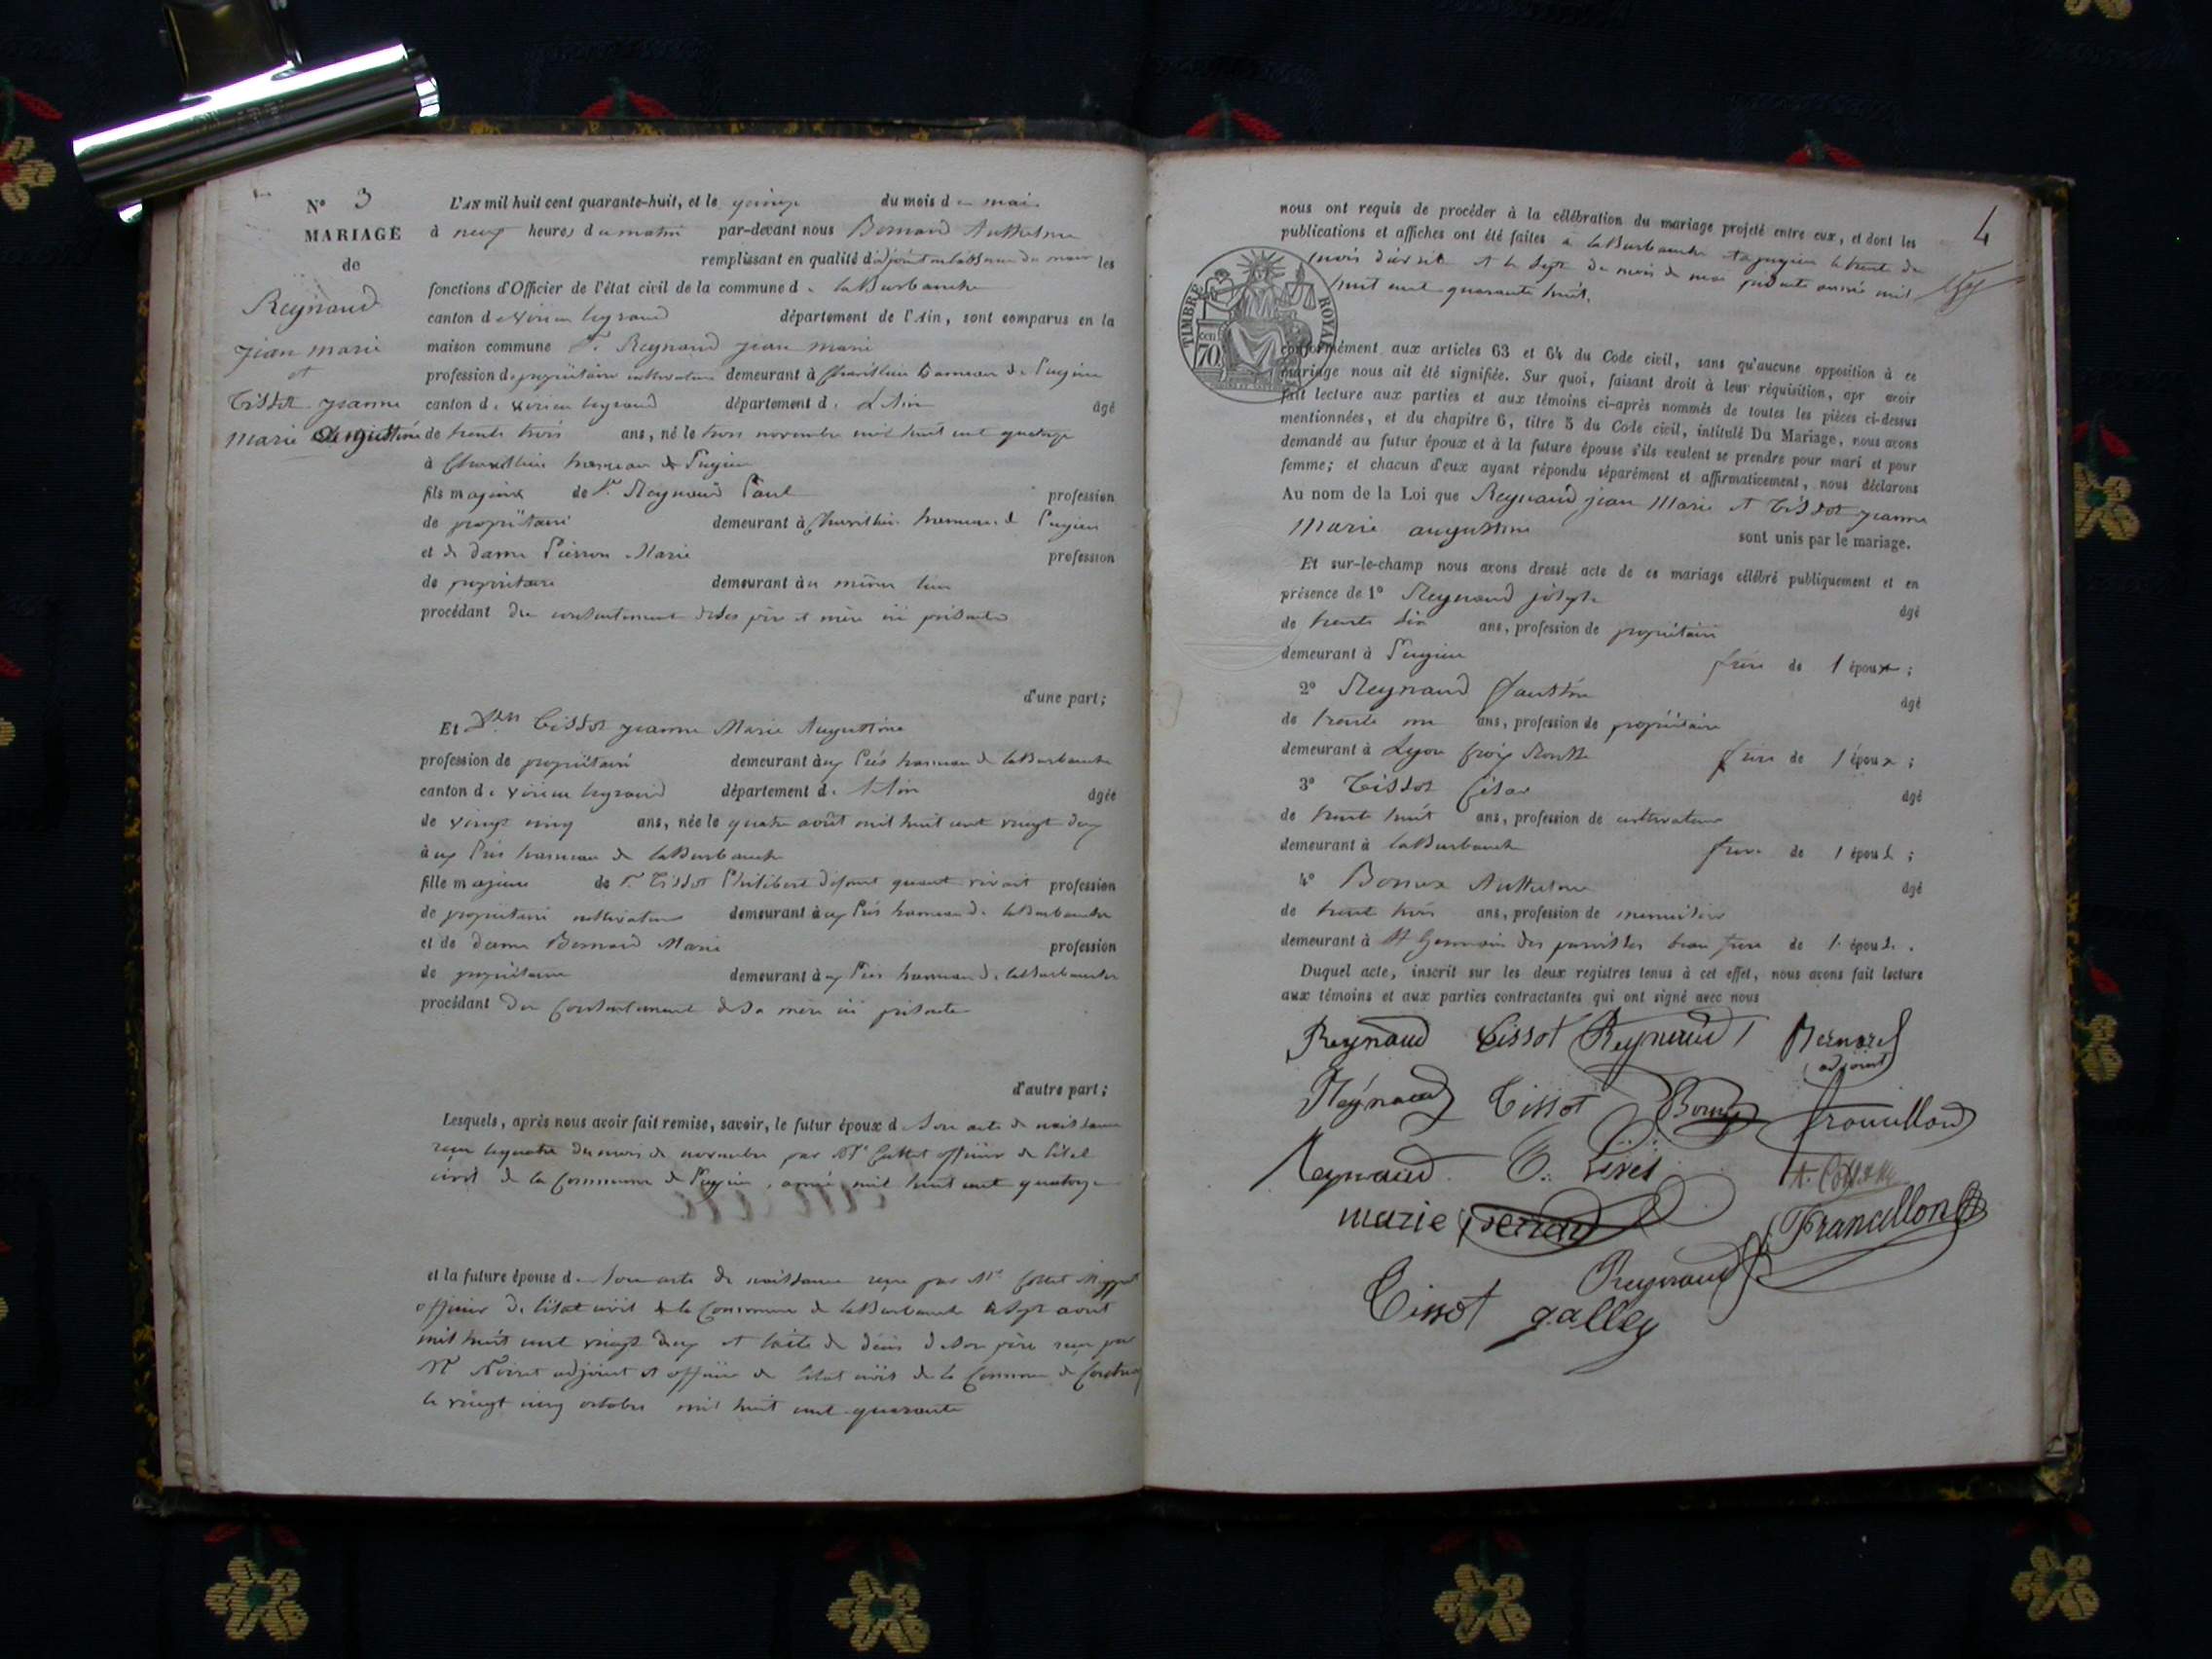 N° 3
MARIAGE
de
Reynaud
jean marie
et
Tissot jeanne
marie augustine
L'AN mil huit cent quarante-huit, et le quinze du mois de mai
à neuf heures du matin par-devant nous Bernard Anthelme
remplissant en qualité d'adjoint en l'absence du maire les
fonctions d'Officier de l'état civil de la commune de laBurbanche
canton de virieu legrand département de l'Ain, sont comparus en la
maison commune Sr. Reynaud jean marie
profession de propriétaire cultivateur demeurant à hameau de Pugieu
canton de virieu legrand département de L'Ain âgé
de trente trois ans, né le trois novembre mil huit cent quatorze
à hameau de Pugieu
fils majeur de Sr. Reynaud Paul profession
de propriétaire demeurant à hameau de Pugieu
et de dame Pierron Marie profession
de propriétaire demeurant au même lieu
procédant du consentement de ses père et mère ici présents
d'une part;
Et Dlle Tissot jeanne Marie Augustine
profession de propriétaire demeurant aux Prés hameau de laBurbanche
canton de virieu legrand département de l'Ain âgée
de vingt cinq ans, née le quatre août mil huit cent vingt deux
à aux Prés hameau de laBurbanche
fille majeure de Sr. Tissot Philibert défunt quant vivait profession
de propriétaire cultivateur demeurant aux Prés hameau de laBurbanche
et de dame Bernard Marie profession
de propriétaire demeurant aux Prés hameau de laBurbanche
procédant du Consentement de sa mère ici présente
d'autre part;
Lesquels, après nous avoir fait remise, savoir, le futur époux de Son acte de naissance
reçu le quatre du mois de novembre par Mr officier de l'état
civil de la Commune de Pugieu, année mil huit cent quatorze
et la future épouse de Son acte de naissance reçu par Mr
officier de l'état civil de la Commune de laBurbanche le sept août
mil huit cent vingt deux et l'acte de décès de son père reçu par
Mr adjoint et officier de l'état civil de la Commune de
le vingt cinq octobre mil huit cent quarante
4
nous ont requis de procéder à la célébration du mariage projeté entre eux, et dont les
publications et affiches ont été faites à laBurbanche et a pugieu le trente du
mois d'avril et le Sept du mois de mai présente année mil
huit cent quarante huit.
TIMBRE ROYAL
cen 70
conformément aux articles 63 et 64 du Code civil, sans qu'aucune opposition à ce
mariage nous ait été signifiée. Sur quoi, faisant droit à leur réquisition, apr avoir
fait lecture aux parties et aux témoins ci-après nommés de toutes les pièces ci-dessus
mentionnées, et du chapitre 6, titre 5 du Code civil, intitulé Du Mariage, nous avons
demandé au futur époux et à la future épouse s'ils veulent se prendre pour mari et pour
femme; et chacun d'eux ayant répondu séparément et affirmativement, nous déclarons
Au nom de la Loi que Reynaud jean Marie et Tissot jeanne
Marie augustine sont unis par le mariage.
Et sur-le-champ nous avons dressé acte de ce mariage célébré publiquement et en
présence de 1° Reynaud joseph âgé
de trente six ans, profession de propriétaire
demeurant à Pugieu frère de l époux;
2° Reynaud faustin âgé
de trente un ans, profession de propriétaire
demeurant à Lyon croix Rousse frère de l'époux;
3° Tissot César âgé
de trente huit ans, profession de cultivateur
demeurant à laBurbanche frère de l épouse;
4° Anthelme âgé
de trente trois ans, profession de
demeurant à St Germain des paroisses beau frère de l'épouse.
Duquel acte, inscrit sur les deux registres tenus à cet effet, nous avons fait lecture
aux témoins et aux parties contractantes qui ont signé avec nous
Reynaud Tissot Reynaud Bernard
adjoint
Reynaud Tissot
Reynaud
marie
Francillon
Reynaud
Tissot galley